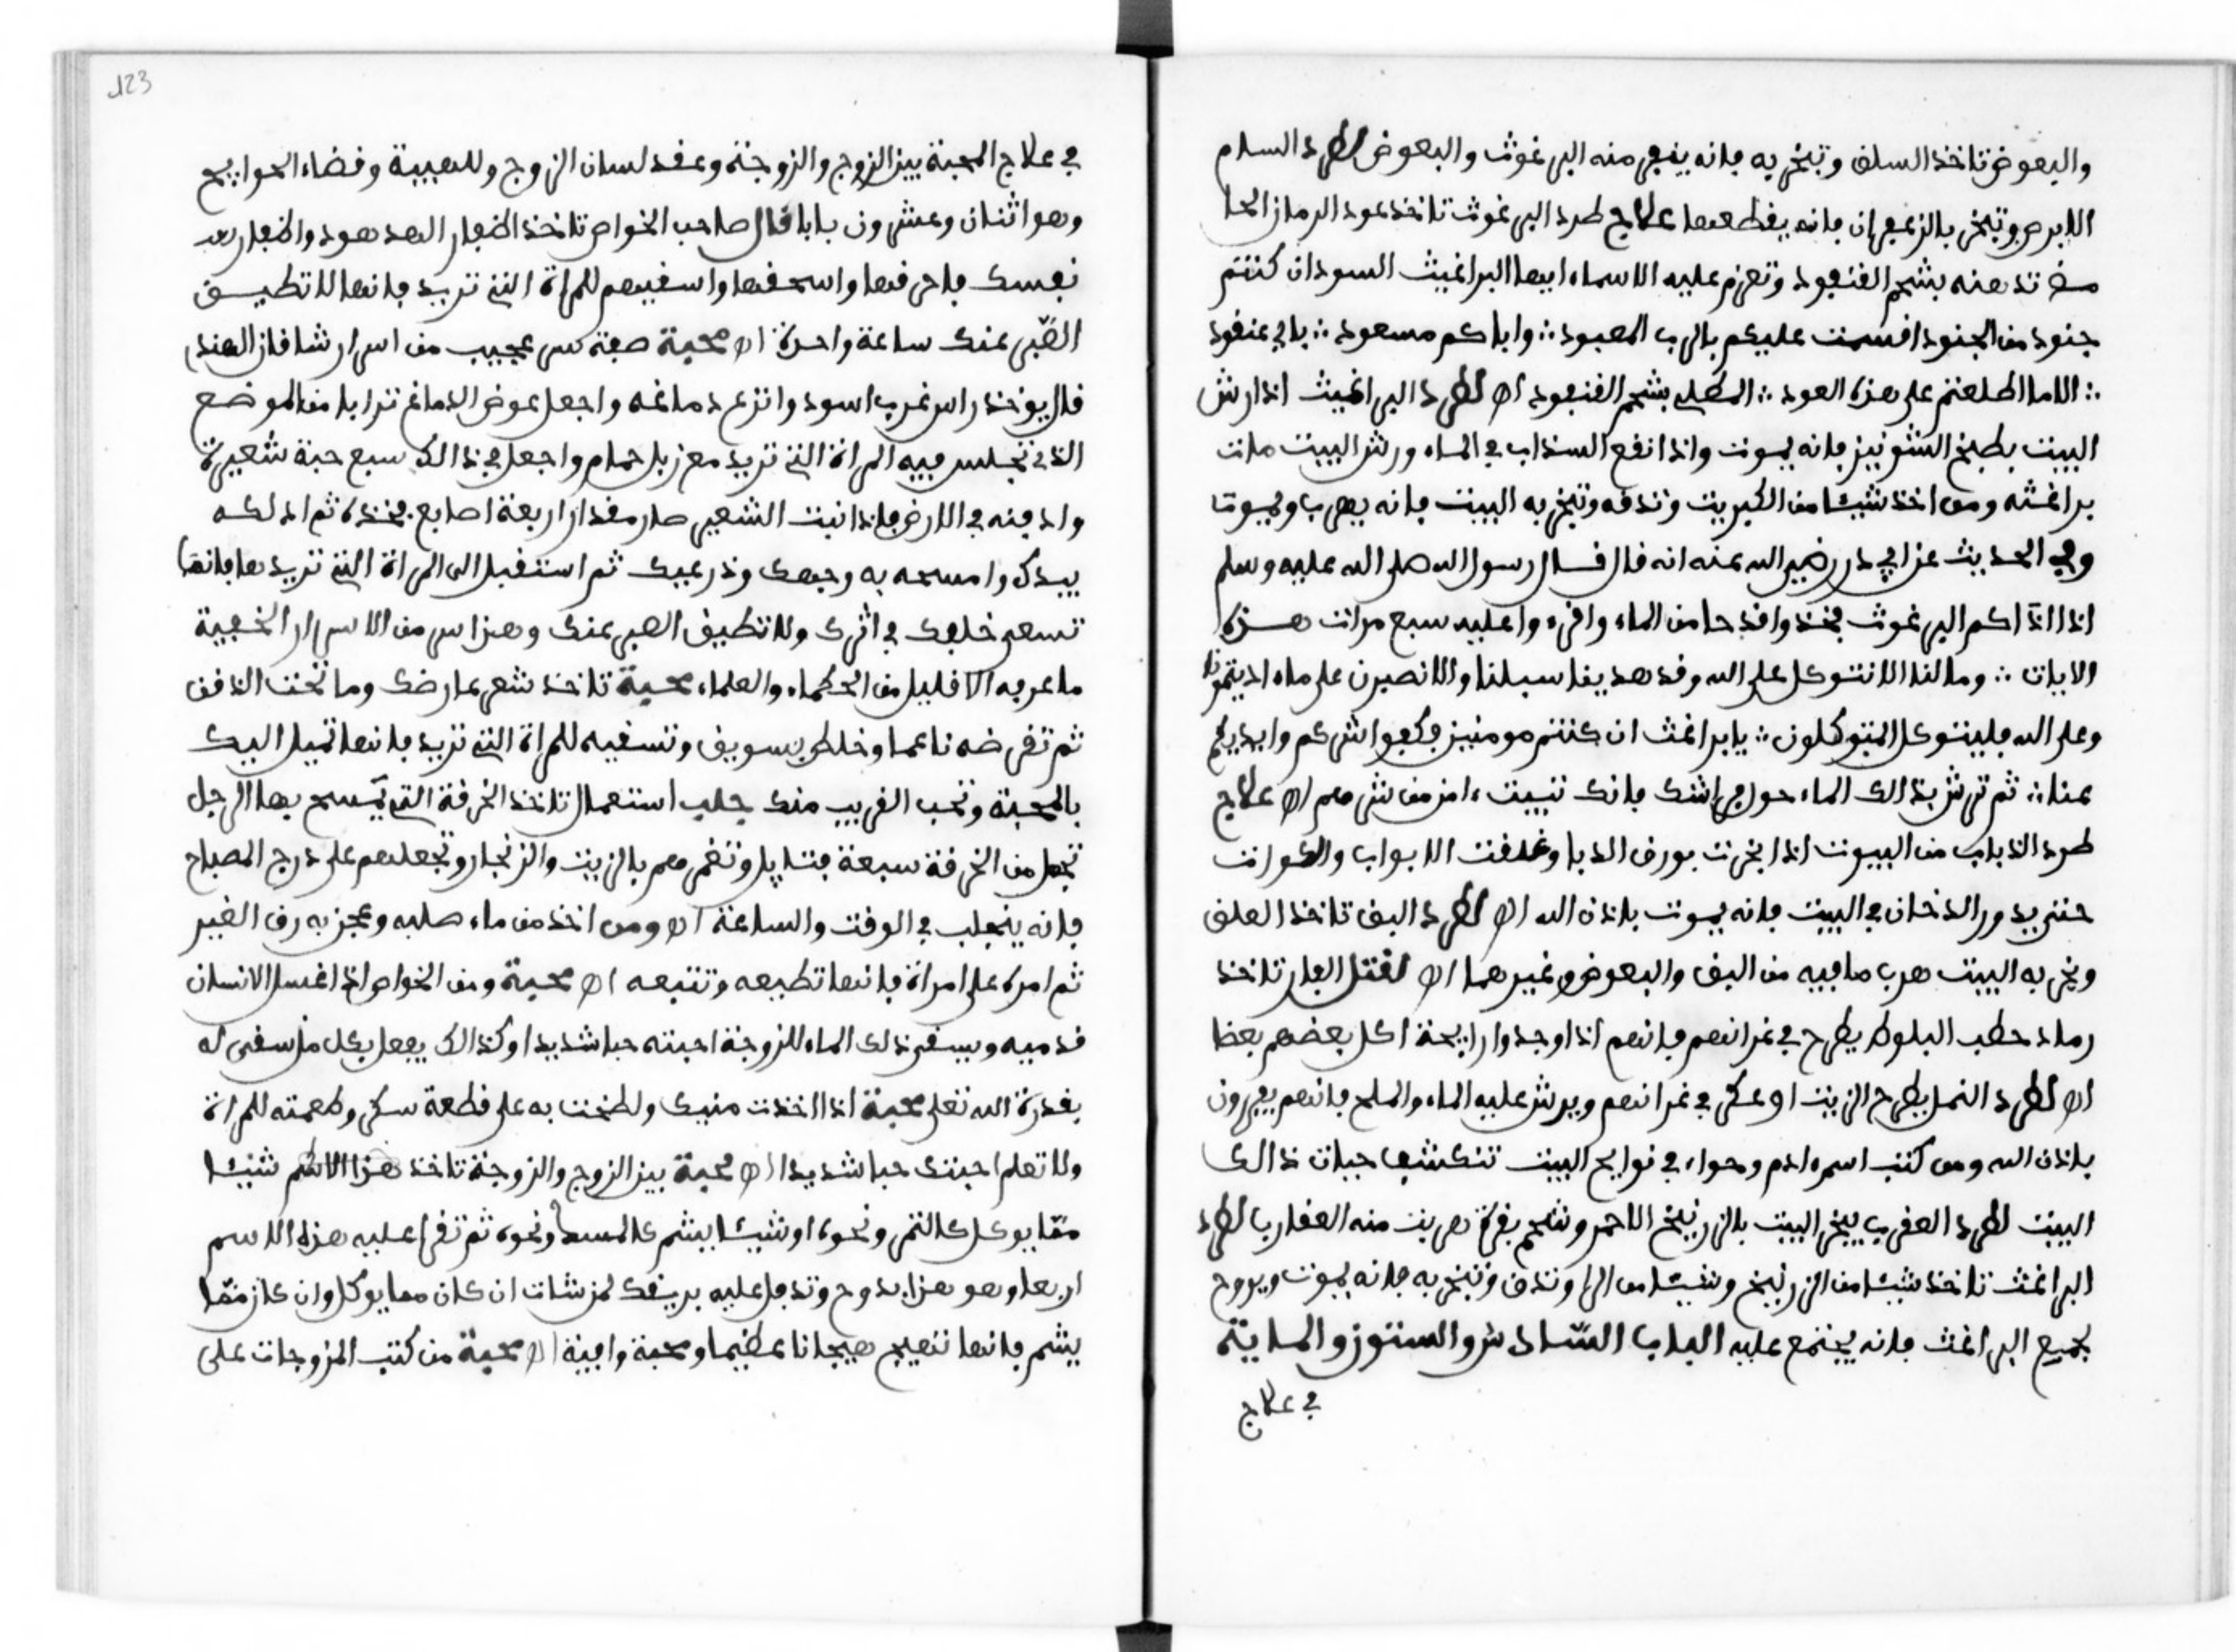 والبعوض تاخذ السلق وتبخر به فانه ينفر منه البرغوث والبعوض لطرد السام
الابرص وتبخر بالزعفران فانه يقطعها علاج طرد البرغوث تاخذ عود الرمان الحا
مض تدهنه بشحم القنفود وتعزم عليه الاسماء ايها البراغيث السودان كنتم
جنود من الجنود اقسمت عليكم بالرب المعبود ∴ واباكم مسعود ∴ بابي عنقود
∴ الا ما اطلعتم على هذه العود ∴ المطلي بشحم القنفود اه لطرد البراغيث اذا رش
البيت بطبخ الشونيز فانه يموت واذا نقع السذاب في الماء ورش البيت مات
براغثه ومن اخذ شيئا من الكبريت وتدقه وتبخر به البيت فانه يهرب ويموتا
وفي الحديث عن ابي ذر رضي الله عنه انه قال قال رسول الله صلى الله عليه وسلم
اذا اذاكم البرغوث فخذوا قدحا من الماء واقرءوا عليه سبع مرات هذه
الايات ∴ وما لنا الا نتوكل على الله وقد هدينا سبلنا ولنصبرن على ما اذيتمونا
وعلى الله فليتوكل المتوكلون ∴ يا براغث ان كنتم مومنين فكفوا شركم وايديكم
عنا ∴ ثم ترش بذالك الماء حول فراشك فانك تبيت ءامن من شرهم اه علاج
طرد الذباب من البيوت اذا بخرت بورق الدبا وغلقت الابواب والكوات
حتى يدور الدخان في البيت فانه يموت باذن الله اه لطرد البق تاخذ العلق
وبخر به البيت هرب ما فيه من البق والبعوض وغيرهما اه لقتل الفار تاخذ
رماد حطب البلوط يطرح في غرانهم فانهم اذا وجدوا رايحة اكل بعضهم بعظا
اه لطرد النمل يطرح الزيت او عكر في غرانهم ويرش عليه الماء والملح فانهم يفرون
باذن الله ومن كتب اسم ءادم وحواء في نوايح البيت تنكشفها حيات ذالك
البيت لطرد العقرب يبخر البيت بالزرنيخ الاحمر وشحم بقرة هربت منه العقارب لطرد
البراغث تاخذ شيئا من الزرنيخ وشيئا من الراوند وتبخر به فانه يموت ويروح
جميع البراغث فانه يجتمع عليه الباب السادس والستون والماية
في علاج
123
في علاج المحبة بين الزوج والزوجة وعقد لسان الزوج وللهيبة وقضاء الحوايج
وهو اثنان وعشرون بابا قال صاحب الخواص تاخذ اظفار الهدهود واظفار يد
نفسك فاحرقها واسحقها واسقيهم للمراة التي تريد فانها لا تطيق
الصبر عنك ساعة واحدة اه محبة صفة سر عجيب من اسرار شافاز الهندي
قال يوخذ راس غراب اسود وانزع دماغه واجعل عوض الدماغ ترابا من الموضع
الذي تجلس فيه المراة التي تريد مع زبل حمام واجعل في ذالك سبع حبة شعيرة
وادفنه في الارض فاذا نبت الشعير صار مقدار اربعة اصابع فخذه ثم ادلكه
بيدك وامسحه به وجهك وذرعيك ثم استقبل الى المراة التي تريدها فانها
تسعى خلفك في اثرك ولا تطيق الصبر عنك وهذا سر من الاسرار الخفية
ما عرفه الا قليل من الحكماء والعلماء محبة تاخذ شعر عارضك وما تحت الذقن
ثم تقرضه ناعما وخلطه بسويق وتسقيه للمراة التي تريد فانها تميل اليك
بالمحبة وتحب القريب منك جلب استعمال تاخذ الخرقة التي يمسح بها الرجل
تجعل من الخرقة سبعة فتايل وتغمرهم بالزيت والزنجار وتجعلهم على درج المصباح
فانه ينجلب في الوقت والساعة اه ومن اخذ من ماء صلبه وعجن به رق الغير
ثم امره على امراة فانها تطيعه وتتبعه اه محبة ومن الخواص اذا غسل الانسان
قدميه ويسقى ذلك الماء للزوجة احبته حبا شديدا وكذالك يفعل بكل من سقى له
بقدرة الله تعلى محبة اذا اخذت منيك ولطخت به على قطعة سكر وطعمته للمراة
ولا تعلم احبتك حبا شديدا اه محبة بين الزوج والزوجة تاخذ هذا الاسم شيئا
مما يوكل كالتمر ونحوه او شيئا يشم كالمسك ونحوه ثم تقرا عليه هذا الاسم
اربعا وهو هذا بدوح وتدفل عليه بريقك لمن شات ان كان مما يوكل وان كان مما
يشم فانها تهيج هيجانا عظيما ومحبة وافية اه محبة من كتب المزوجات على